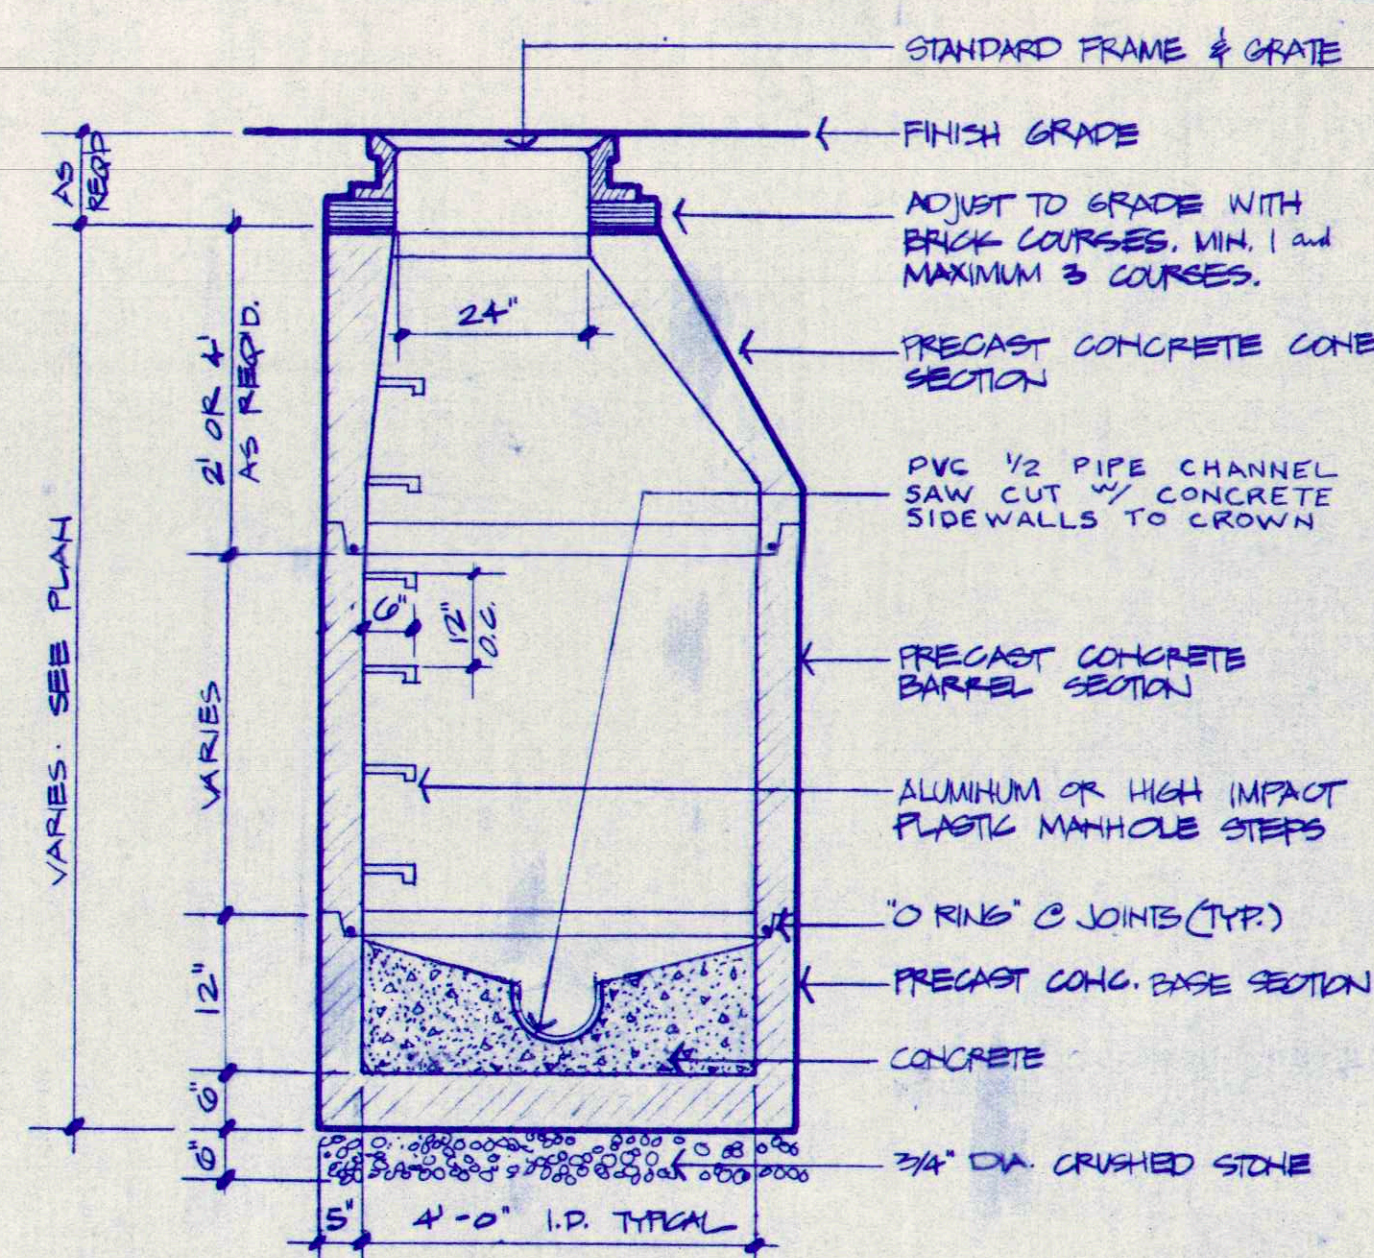 STANDARD FRAME & GRATE
FINISH GRADE
ADJUST TO GRADE WITH
BRICK COURSES. MIN. 1 and
MAXIMUM 3 COURSES.
PRECAST CONCRETE CONE
SECTION
PVC 1/2 PIPE CHANNEL
SAW CUT W/ CONCRETE
SIDEWALLS TO CROWN
PRECAST CONCRETE
BARREL SECTION
ALUMINUM OR HIGH IMPACT
PLASTIC MANHOLE STEPS
"O RING" @ JOINTS (TYP.)
PRECAST CONC. BASE SECTION
CONCRETE
3/4" DIA. CRUSHED STONE
AS
REQ'D
VARIES. SEE PLAN
2' OR 4'
AS REQ'D.
VARIES
12"
6"
6"
24"
6"
12"
O.C.
5"
4'-0" I.D. TYPICAL